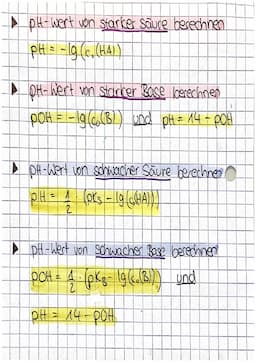 pH-Wert von starker Säure berechnen
pH = -lg(c₀(HA))
pH-Wert von starker Base berechnen
pOH = -lg(c₀(B)) und pH = 14 - pOH
pH-Wert von schwacher Säure berechnen
pH = 1/2 · (pKs - lg(c₀(HA)))
pH-Wert von schwacher Base berechnen
pOH = 1/2 · (pKB - lg(c₀(B))) und
pH = 14 - pOH